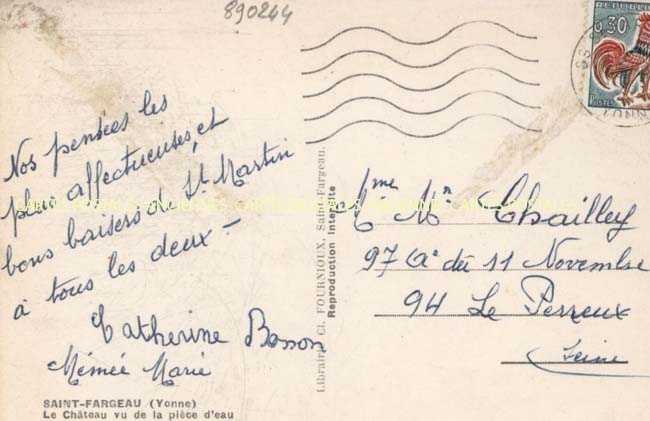 890244
RÉPUBLIQUE
0,30
POSTES
YONNE
Nos pensées les
plus affectueuses, et
bons baisers de St Martin
à tous les deux -
Catherine Bosson
Mémée Marie
SAINT-FARGEAU (Yonne)
Le Château vu de la pièce d'eau
Librairie Cl. FOURNIOUX, Saint-Fargeau.
Reproduction interdite
Mme Mr Chailley
97 Av du 11 Novembre
94 Le Perreux
Seine